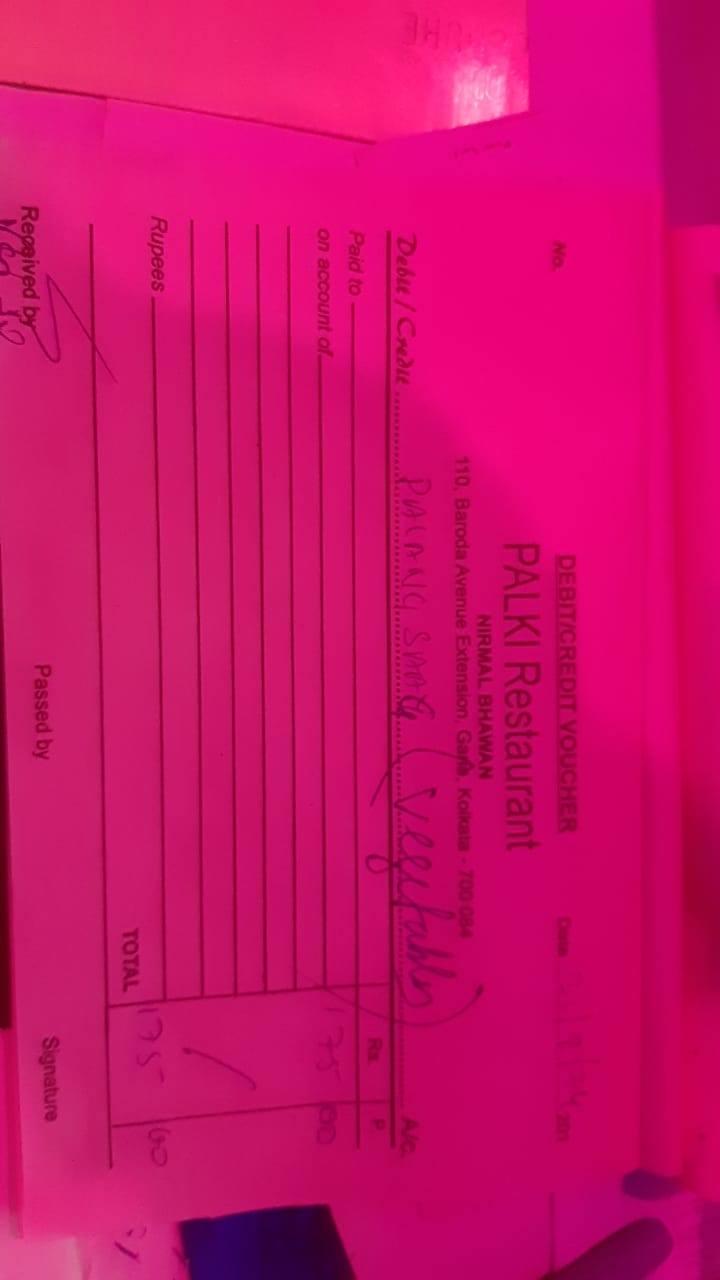 DEBIT/CREDIT VOUCHER
No.
Date 201
PALKI Restaurant
NIRMAL BHAWAN
110, Baroda Avenue Extension, Garia, Kolkata - 700 084
Debit / Credit PALANG SHAAG (vegetables) A/c.
Paid to Rs. P.
on account of 175 00
Rupees
TOTAL 175 00
Received by Passed by Signature